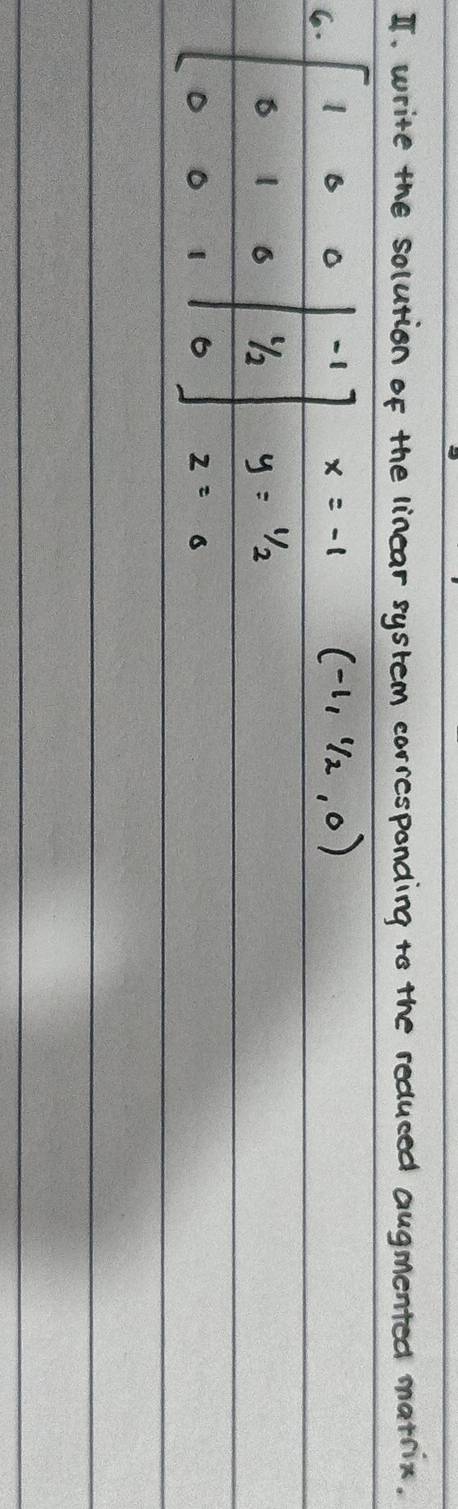 II. write the solution of the linear system corresponding to the reduced augmented matrix.
6. [ 1 0 0 | -1 ] x = -1 (-1, 1/2, 0)
0 1 0 | 1/2 y = 1/2
0 0 1 | 0 z = 0